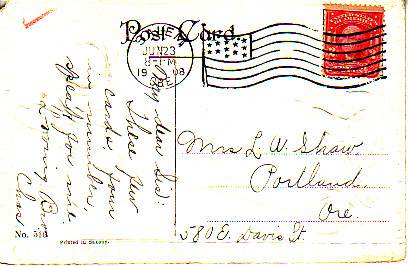 Post Card
JUN 23
8-PM
1908
My dear Sis:
These few
cards, four
in number,
speak for me
Loving Bro
Chas
Mrs L. W. Shaw
Portland
Ore.
580 E. Davis St.
No. 510
Printed in Germany.